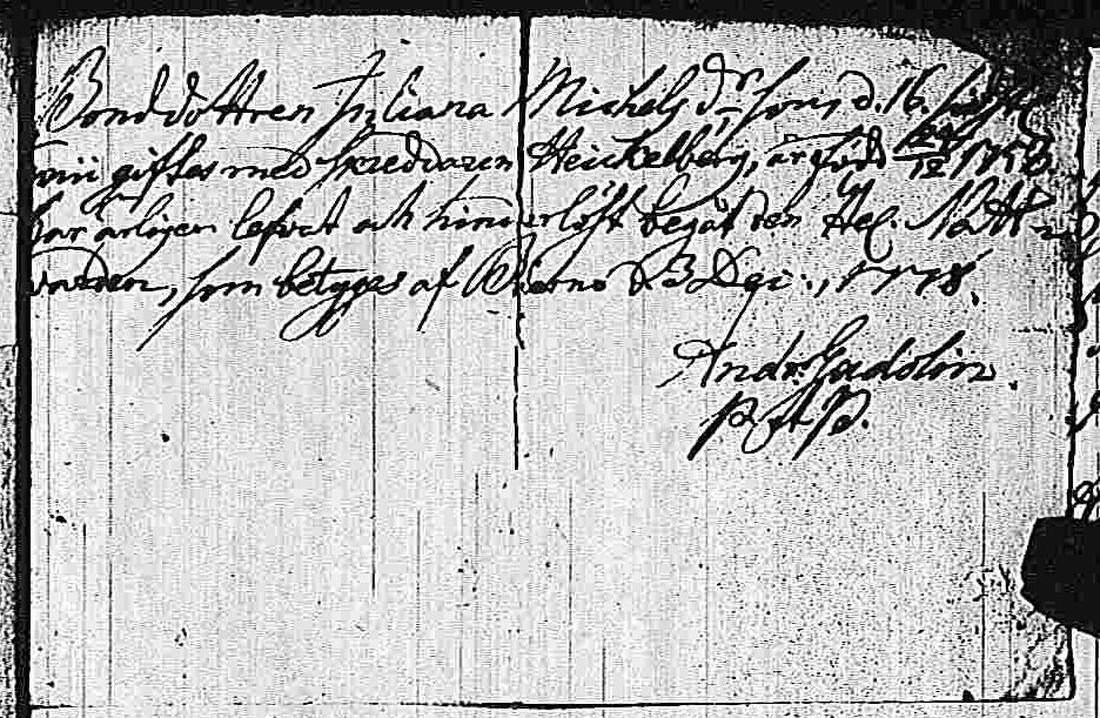 Bonddottren Juliana Michels dr som d. 16.
giftes med skreddaren Heickelberg, är född 12 1758.
har ärligen lefvat och begåt den Hel. Natt-
varden, som betyges af Bierno d. 3 Dec:, 1778.
Andr: Gadolin.
P. & P.